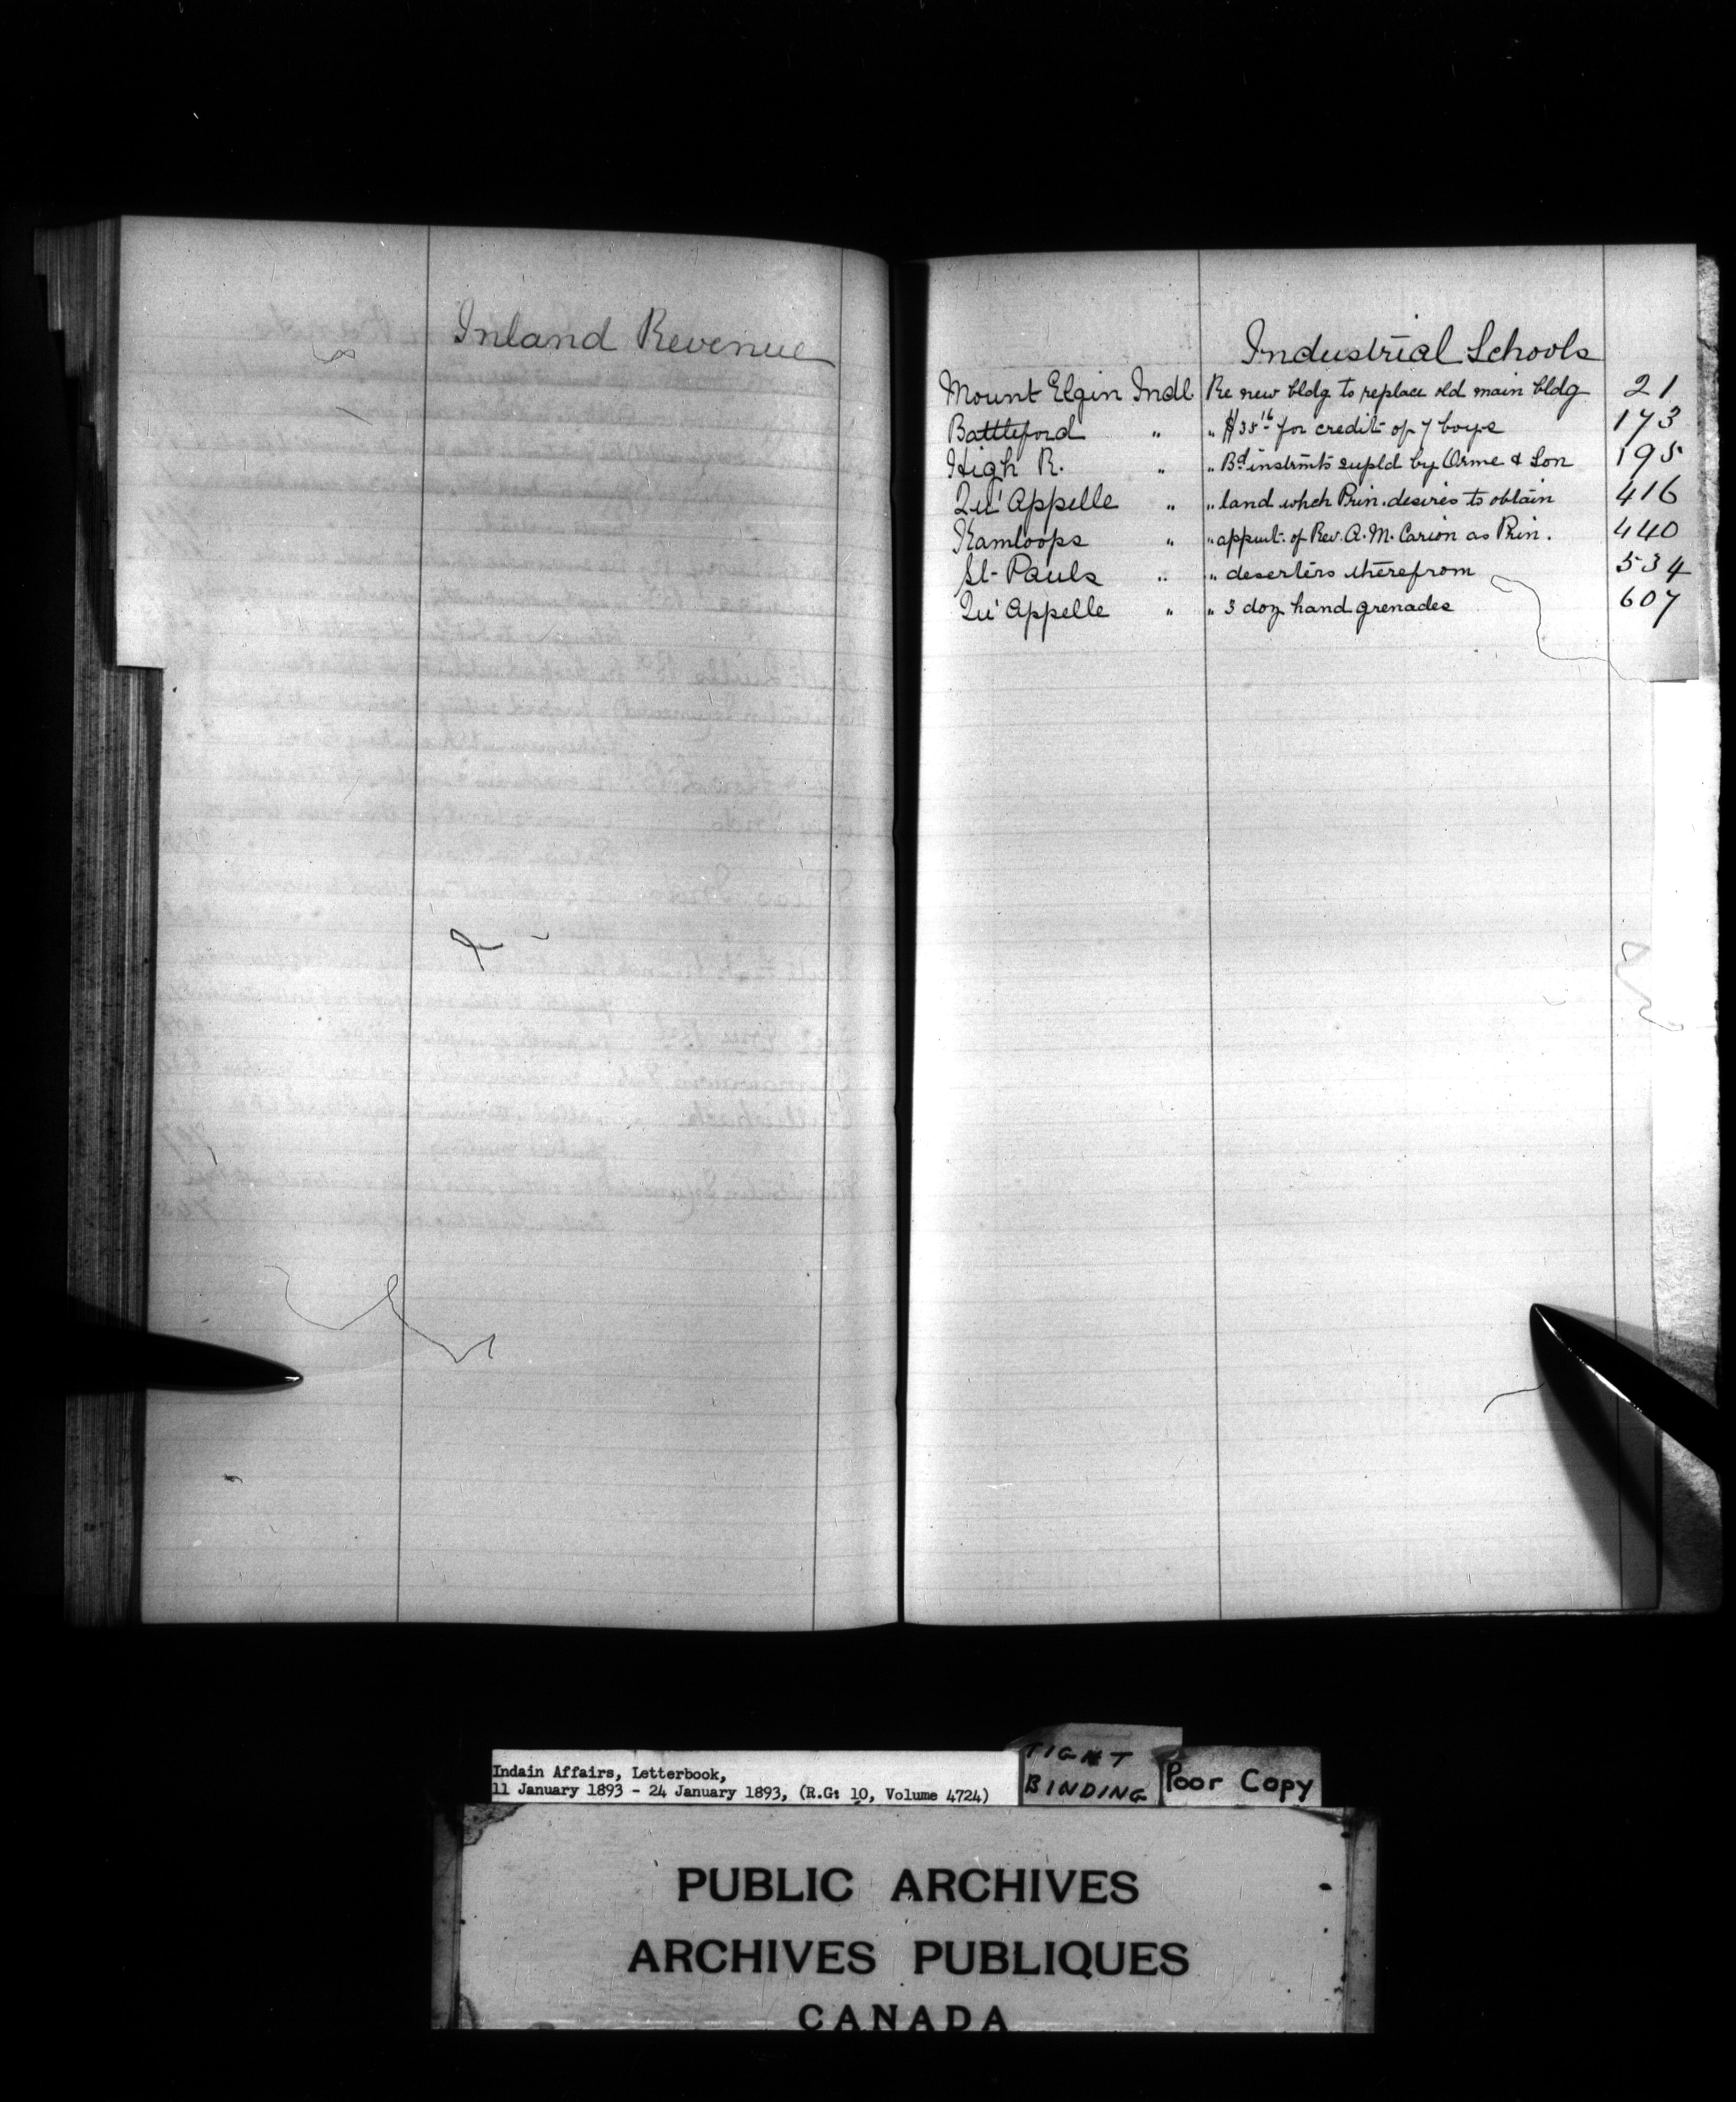 Inland Revenue
Industrial Schools
Mount Elgin Indl Re new bldg to replace old main bldg 21
Battleford " " $38 16 for credit of 7 boys 173
High R. " " Bd instrmts supld by Orme & Son 195
Qu'Appelle " " land whch Prin. desires to obtain 416
Kamloops " " appmt. of Rev. A. M. Carion as Prin. 440
St. Pauls " " deserters therefrom 534
Qu'Appelle " " 3 doz hand grenades 607
Indain Affairs, Letterbook,
11 January 1893 - 24 January 1893, (R.G: 10, Volume 4724)
TIGHT
BINDING
Poor Copy
PUBLIC ARCHIVES
ARCHIVES PUBLIQUES
CANADA